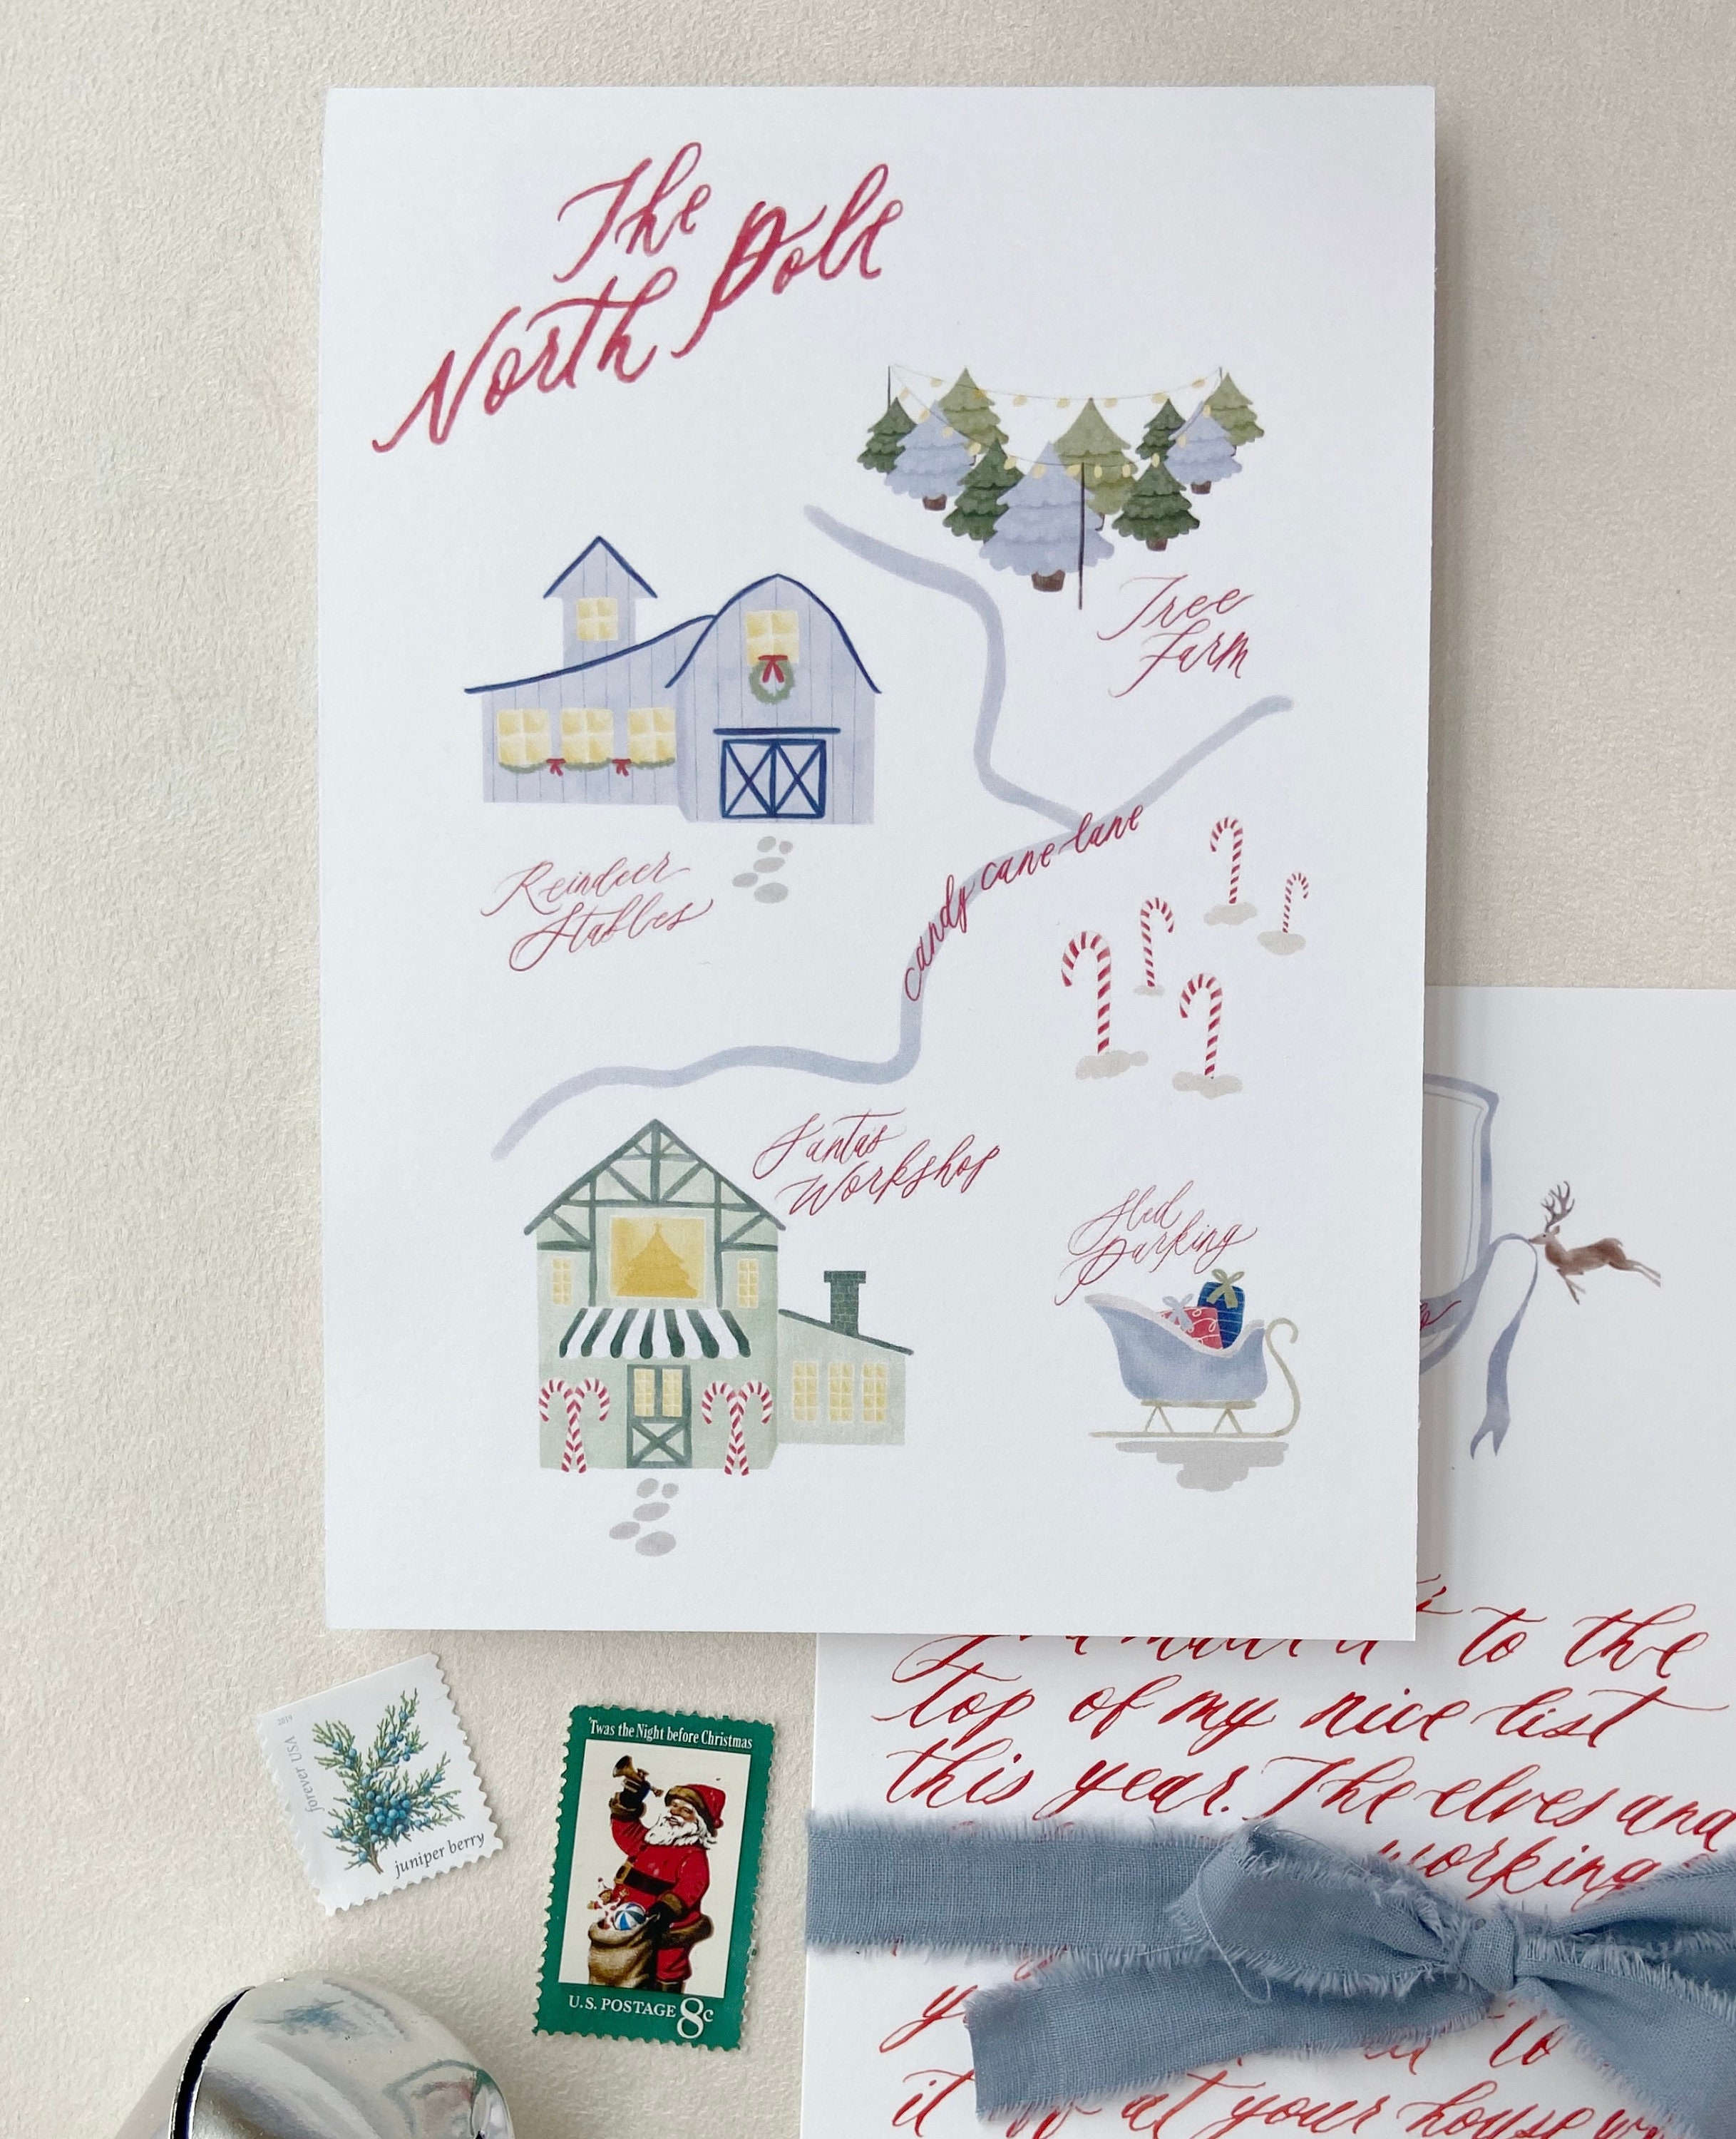 The
North Pole
Tree
Farm
Reindeer
Stables
candy cane lane
Santa's
Workshop
Sled
Parking
to the
top of my nice list
this year. The elves and
working
to
it at your house
2019
forever USA
juniper berry
'Twas the Night before Christmas
U.S. POSTAGE 8c